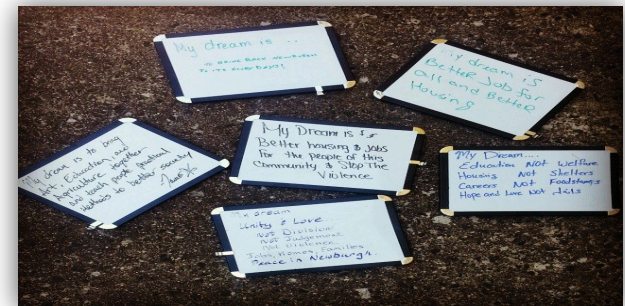 My dream is ..
TO BRING BACK NEWBURGH
TO ITS GLORY DAYS!
My dream is
Better Job for
all and Better
Housing
My dream is to bring
Art, Education, and
Agriculture together
and teach people practical
to better society
My Dream is for
Better housing & Jobs
For the people of this
Community & Stop The
Violence
My Dream....
Education Not Welfare
Housing Not Shelters
Careers Not Foodstamps
Hope and Love Not Jails
My dream
Unity & Love
Not Division
Not Judgement
Not Violence
Jobs, Homes, Families
Peace in Newburgh